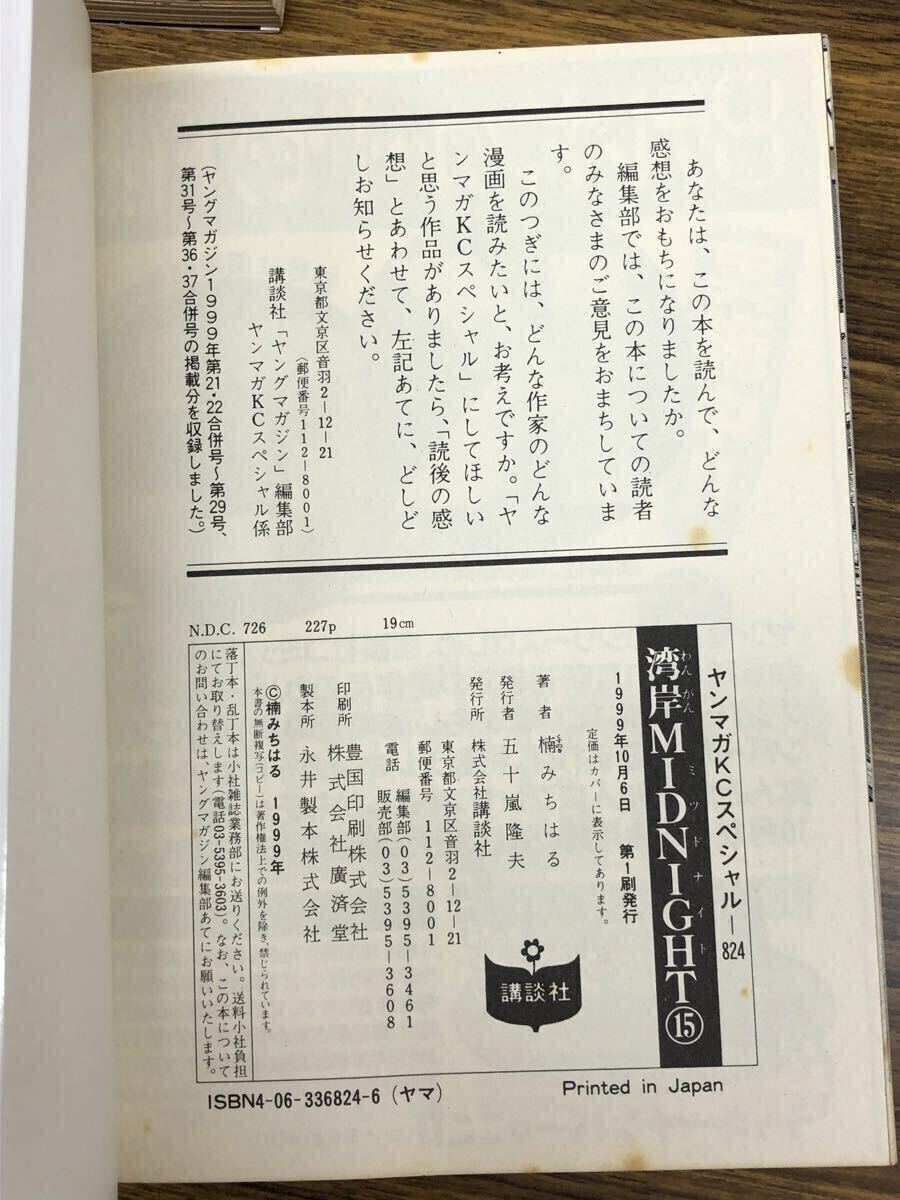 あなたは、この本を読んで、どんな
感想をおもちになりましたか。
編集部では、この本についての読者
のみなさまのご意見をおまちしていま
す。
このつぎには、どんな作家のどんな
漫画を読みたいと、お考えですか。「ヤ
ンマガKCスペシャル」にしてほしい
と思う作品がありましたら、「読後の感
想」とあわせて、左記あてに、どしど
しお知らせください。
東京都文京区音羽2-12-21
(郵便番号112-8001)
講談社「ヤングマガジン」編集部
ヤンマガKCスペシャル係
(ヤングマガジン1999年第21・22合併号〜第29号、
第31号〜第36・37合併号の掲載分を収録しました。)
N.D.C. 726 227p 19cm
ヤンマガKCスペシャル—824
湾岸MIDNIGHT⑮
わんがんミッドナイト
1999年10月6日 第1刷発行
定価はカバーに表示してあります。
著者 楠みちはる
発行者 五十嵐隆夫
発行所 株式会社講談社
東京都文京区音羽2-12-21
郵便番号 112-8001
電話 編集部(03)5395-3461
販売部(03)5395-3608
印刷所 豊国印刷株式会社
株式会社廣済堂
製本所 永井製本株式会社
©楠みちはる 1999年
本書の無断複写(コピー)は著作権法上での例外を除き、禁じられています。
落丁本・乱丁本は小社雑誌業務部にお送りください。送料小社負担
にてお取り替えします(電話03-5395-3603)。なお、この本について
のお問い合わせは、ヤングマガジン編集部あてにお願いいたします。
講談社
ISBN4-06-336824-6 (ヤマ)
Printed in Japan